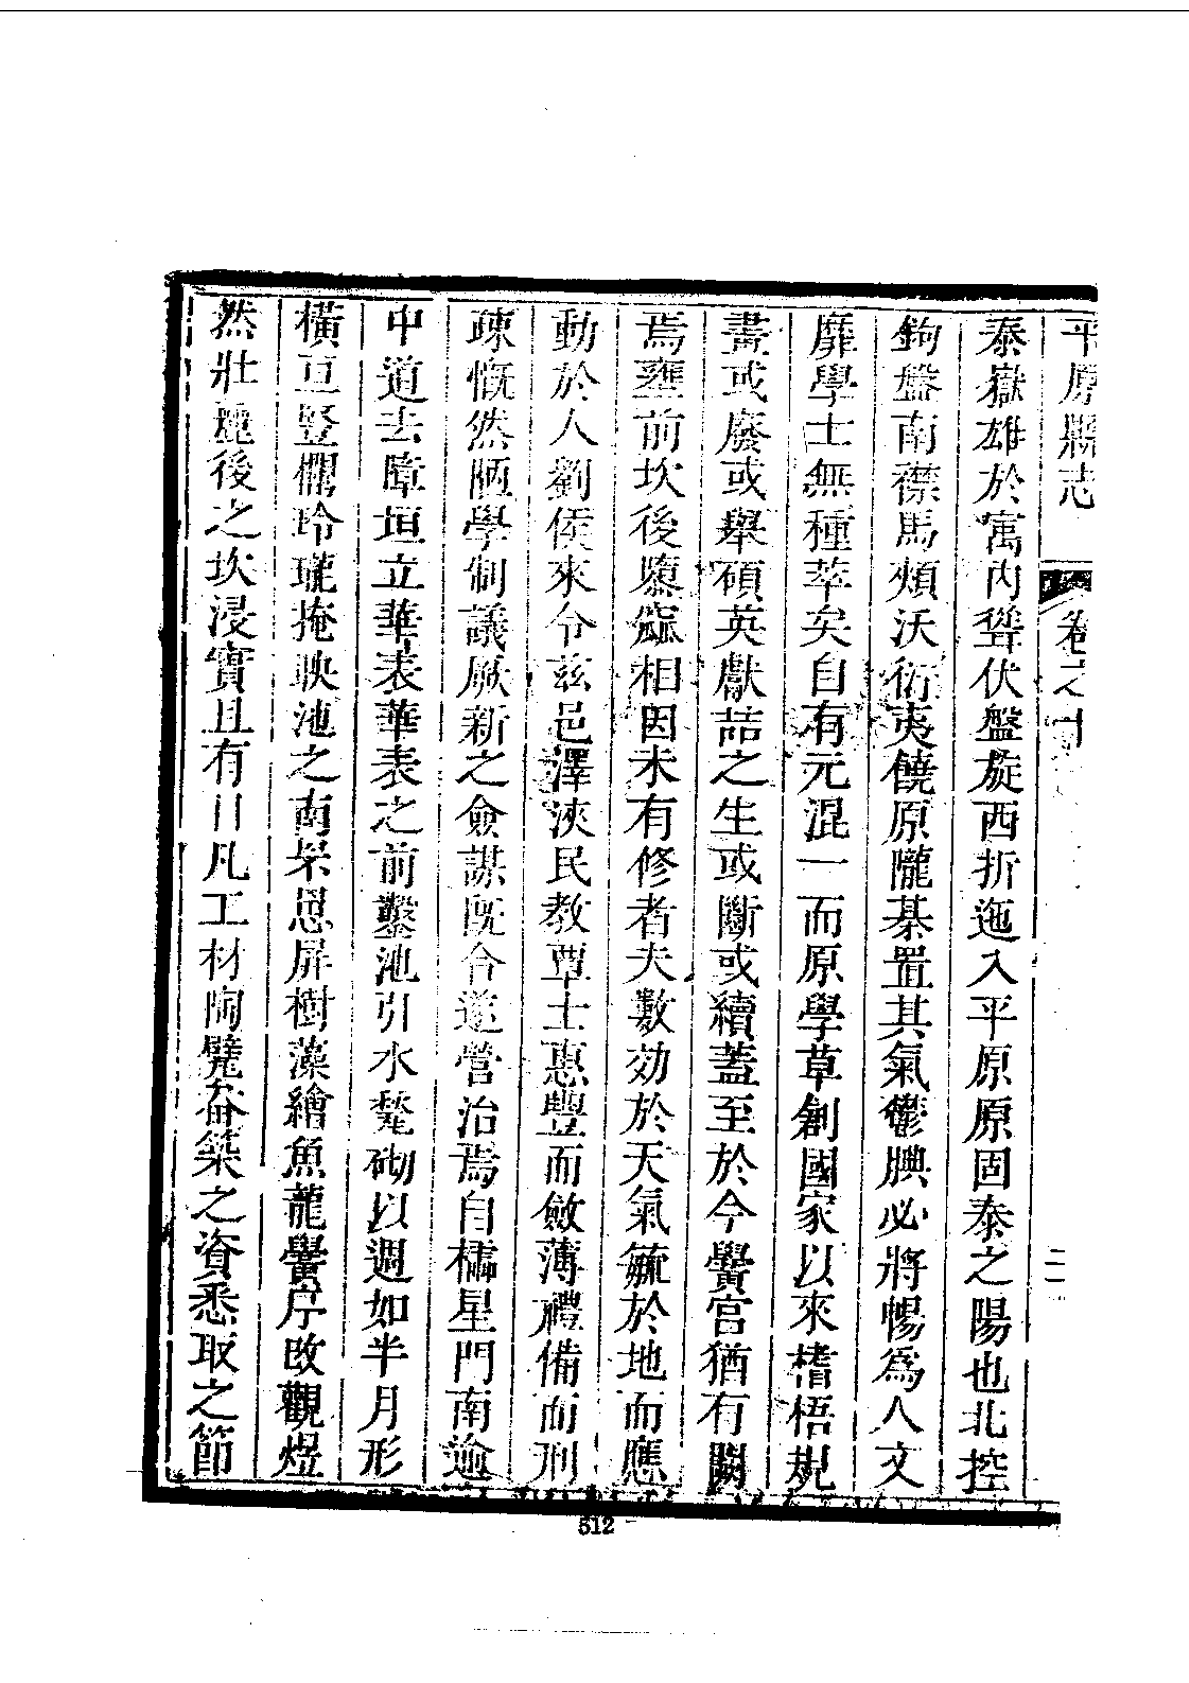 平原縣志
卷之十
二
泰嶽雄於寓內聳伏盤旋西折迤入平原原固泰之陽也北控
鉤盤南襟馬頰沃衍夷饒原隴棊置其氣鬱腆必將暢爲人文
靡學士無種萃矣自有元混一而原學草創國家以來楮梧規
畫或廢或舉碩英獻喆之生或斷或續蓋至於今黌宮猶有闕
焉壅前坎後隳窳相因未有修者夫數効於天氣毓於地而應
動於人劉侯來令兹邑澤浹民教覃士惠豐而斂薄禮備而刑
疎慨然陋學制議厥新之僉謀旣合遂營治焉自櫺星門南逾
中道去障垣立華表華表之前鑿池引水甃砌以週如半月形
橫亘竪欄玲瓏掩映池之南杗罳屏樹藻繪魚龍黌序改觀煜
然壯麗後之坎浸實且有日凡工材陶甓畚築之資悉取之節
512